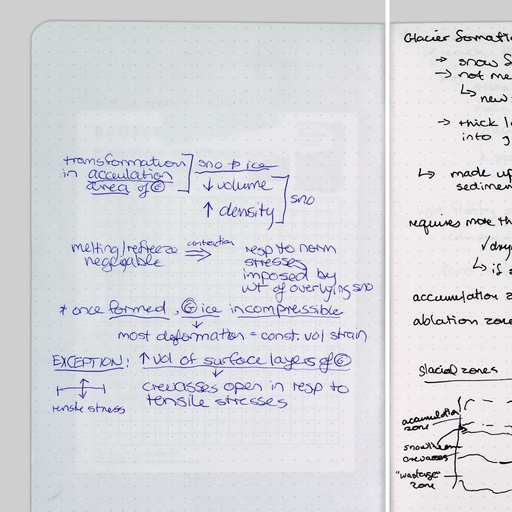 transformation
in acculation
area of G
sno → ice
↓ volume
↑ density
sno
melting/refreeze
negligable
contraction
resp to norm
stresses
imposed by
wt of overlying sno
* once formed, G ice incompressible
most deformation = const. vol strain
EXCEPTION: ↑ vol of surface layers of G
crevasses open in resp to
tensile stresses
tensile stress
Glacier formati
→ snow
→ not me
↳ new
→ thick l
into g
↳ made up
sedimen
requires more th
↳ if
accumulation z
ablation zone
glacial zones
accumulation
zone
snowline
crevasses
"wastage"
zone